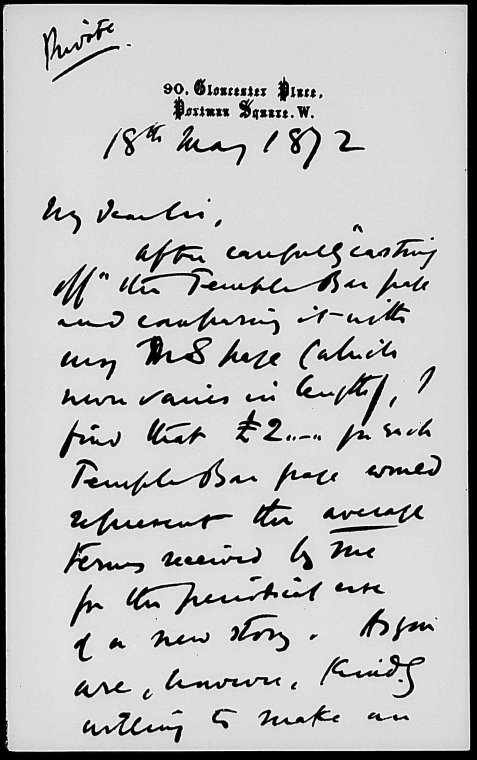 Private.
90. Gloucester Place,
Portman Square. W.
18th May 1872
My dear Sir,
After carefully "casting
off" the Temple Bar page
and comparing it with
my MS page (which
never varies in length), I
find that £2..-.. for each
Temple Bar page would
represent the average
terms received by me
for the periodical use
of a new story. As you
are, however, kindly
willing to make an